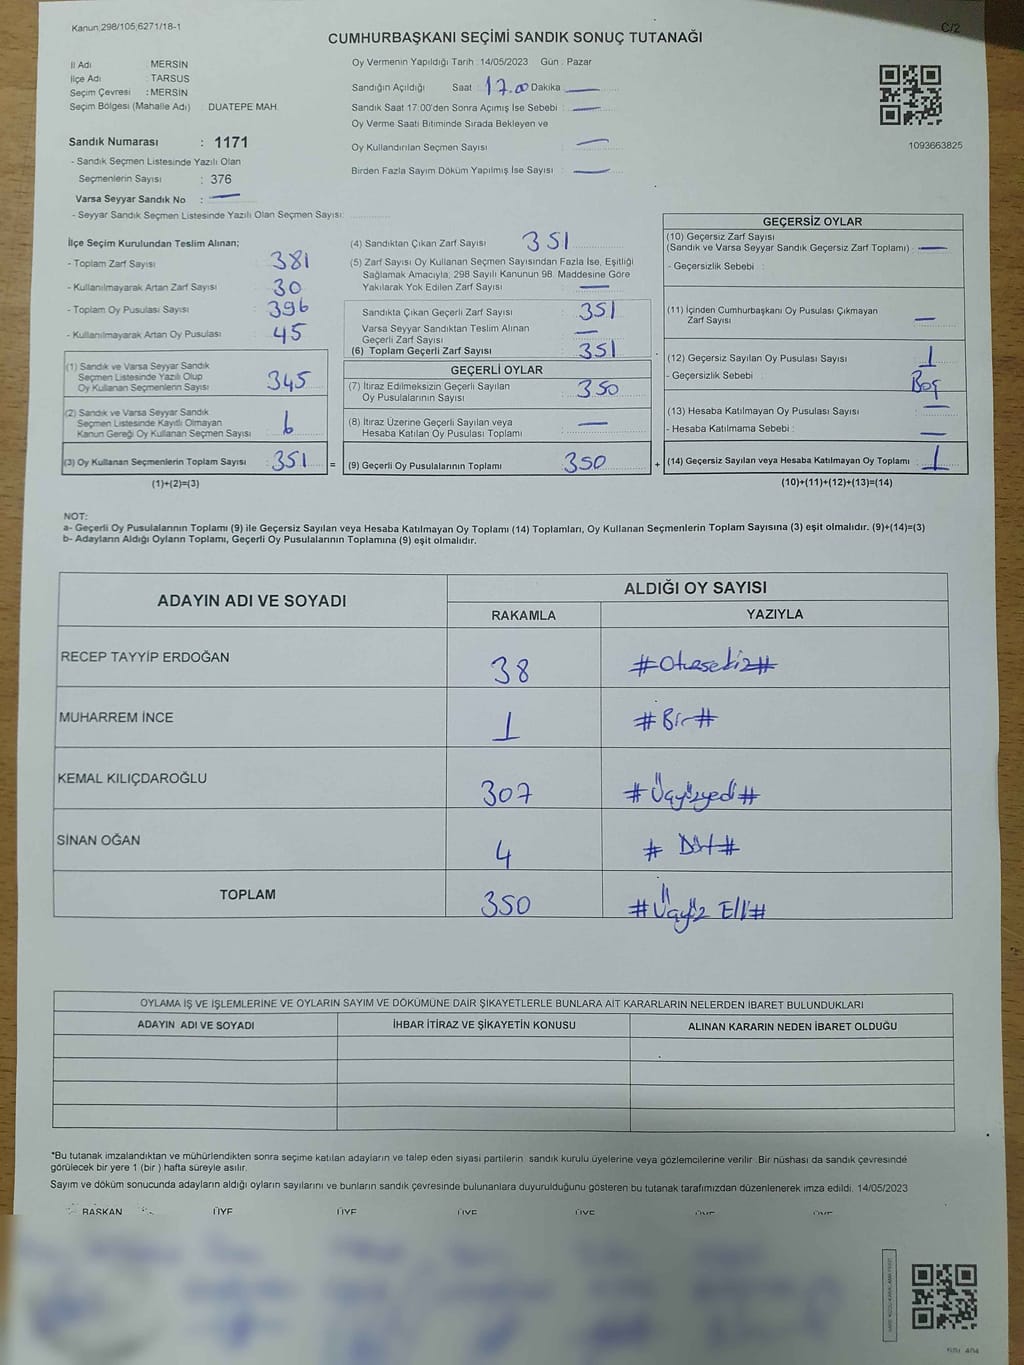 Kanun;298/105;6271/18-1
C/2
CUMHURBAŞKANI SEÇİMİ SANDIK SONUÇ TUTANAĞI
İl Adı : MERSİN
İlçe Adı : TARSUS
Seçim Çevresi : MERSİN
Seçim Bölgesi (Mahalle Adı) : DUATEPE MAH.
Oy Vermenin Yapıldığı Tarih : 14/05/2023 Gün : Pazar
Sandığın Açıldığı Saat : 17.00 Dakika —
Sandık Saat 17:00'den Sonra Açımış İse Sebebi : —
Oy Verme Saati Bitiminde Sırada Bekleyen ve
Oy Kullandırılan Seçmen Sayısı : —
Birden Fazla Sayım Döküm Yapılmış İse Sayısı : —
1093663825
Sandık Numarası : 1171
- Sandık Seçmen Listesinde Yazılı Olan
Seçmenlerin Sayısı : 376
Varsa Seyyar Sandık No : —
- Seyyar Sandık Seçmen Listesinde Yazılı Olan Seçmen Sayısı:
İlçe Seçim Kurulundan Teslim Alınan;
- Toplam Zarf Sayısı : 381
- Kullanılmayarak Artan Zarf Sayısı : 30
- Toplam Oy Pusulası Sayısı : 396
- Kullanılmayarak Artan Oy Pusulası : 45
(1) Sandık ve Varsa Seyyar Sandık
Seçmen Listesinde Yazılı Olup
Oy Kullanan Seçmenlerin Sayısı : 345
(2) Sandık ve Varsa Seyyar Sandık
Seçmen Listesinde Kayıtlı Olmayan
Kanun Gereği Oy Kullanan Seçmen Sayısı : 6
(3) Oy Kullanan Seçmenlerin Toplam Sayısı : 351
(1)+(2)=(3)
(4) Sandıktan Çıkan Zarf Sayısı : 351
(5) Zarf Sayısı Oy Kullanan Seçmen Sayısından Fazla İse, Eşitliği
Sağlamak Amacıyla; 298 Sayılı Kanunun 98. Maddesine Göre
Yakılarak Yok Edilen Zarf Sayısı : —
Sandıkta Çıkan Geçerli Zarf Sayısı : 351
Varsa Seyyar Sandıktan Teslim Alınan
Geçerli Zarf Sayısı : —
(6) Toplam Geçerli Zarf Sayısı : 351
GEÇERLİ OYLAR
(7) İtiraz Edilmeksizin Geçerli Sayılan
Oy Pusulalarının Sayısı : 350
(8) İtiraz Üzerine Geçerli Sayılan veya
Hesaba Katılan Oy Pusulası Toplamı : —
= (9) Geçerli Oy Pusulalarının Toplamı : 350 +
GEÇERSİZ OYLAR
(10) Geçersiz Zarf Sayısı
(Sandık ve Varsa Seyyar Sandık Geçersiz Zarf Toplamı) : —
- Geçersizlik Sebebi :
(11) İçinden Cumhurbaşkanı Oy Pusulası Çıkmayan
Zarf Sayısı : —
(12) Geçersiz Sayılan Oy Pusulası Sayısı : 1
- Geçersizlik Sebebi : Boş
(13) Hesaba Katılmayan Oy Pusulası Sayısı : —
- Hesaba Katılmama Sebebi : —
(14) Geçersiz Sayılan veya Hesaba Katılmayan Oy Toplamı : 1
(10)+(11)+(12)+(13)=(14)
NOT:
a- Geçerli Oy Pusulalarının Toplamı (9) ile Geçersiz Sayılan veya Hesaba Katılmayan Oy Toplamı (14) Toplamları, Oy Kullanan Seçmenlerin Toplam Sayısına (3) eşit olmalıdır. (9)+(14)=(3)
b- Adayların Aldığı Oyların Toplamı, Geçerli Oy Pusulalarının Toplamına (9) eşit olmalıdır.
ADAYIN ADI VE SOYADI
ALDIĞI OY SAYISI
RAKAMLA YAZIYLA
RECEP TAYYİP ERDOĞAN 38 #Otuzsekiz#
MUHARREM İNCE 1 #Bir#
KEMAL KILIÇDAROĞLU 307 #Üçyüzyedi#
SİNAN OĞAN 4 #Dört#
TOPLAM 350 #Üçyüz Elli#
OYLAMA İŞ VE İŞLEMLERİNE VE OYLARIN SAYIM VE DÖKÜMÜNE DAİR ŞİKAYETLERLE BUNLARA AİT KARARLARIN NELERDEN İBARET BULUNDUKLARI
ADAYIN ADI VE SOYADI İHBAR İTİRAZ VE ŞİKAYETİN KONUSU ALINAN KARARIN NEDEN İBARET OLDUĞU
*Bu tutanak imzalandıktan ve mühürlendikten sonra seçime katılan adayların ve talep eden siyasi partilerin sandık kurulu üyelerine veya gözlemcilerine verilir. Bir nüshası da sandık çevresinde
görülecek bir yere 1 (bir ) hafta süreyle asılır.
Sayım ve döküm sonucunda adayların aldığı oyların sayılarını ve bunların sandık çevresinde bulunanlara duyurulduğunu gösteren bu tutanak tarafımızdan düzenlenerek imza edildi. 14/05/2023
BAŞKAN ÜYE ÜYE ÜYE ÜYE ÜYE ÜYE